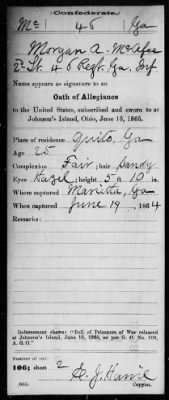 Confederate.
Mc | 46 | Ga
Morgan A. McAfee
2" Lt. 46 Regt. Ga. Inf
Name appears as signature to an
Oath of Allegiance
to the United States, subscribed and sworn to at
Johnson's Island, Ohio, June 15, 1865.
Place of residence Quito, Ga
Age 25
Complexion Fair; hair Sandy
Eyes Hazel; height 5 ft. 10 in.
Where captured Marietta, Ga
When captured June 19, 1864
Remarks:
Indorsement shows: "Roll of Prisoners of War released
at Johnson's Island, June 15, 1865, as per G. O. No. 109,
A. G. O."
Number of roll:
106; sheet 2
Copyist.